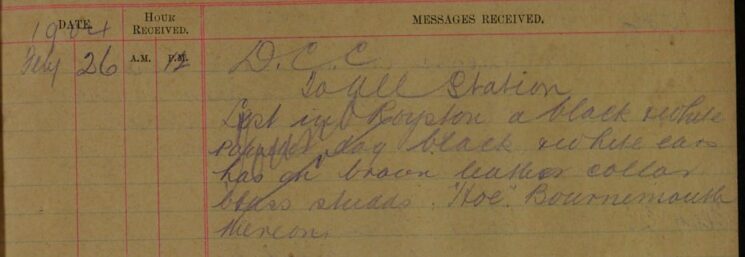 DATE.
HOUR RECEIVED.
MESSAGES RECEIVED.
1904
Feby 26 A.M. P.M. 12
D. C. C.
To All Station
Lost in Royston a black & white
dog black & white ears
has on brown leather collar
brass studds "Hoe" Bournemouth
thereon